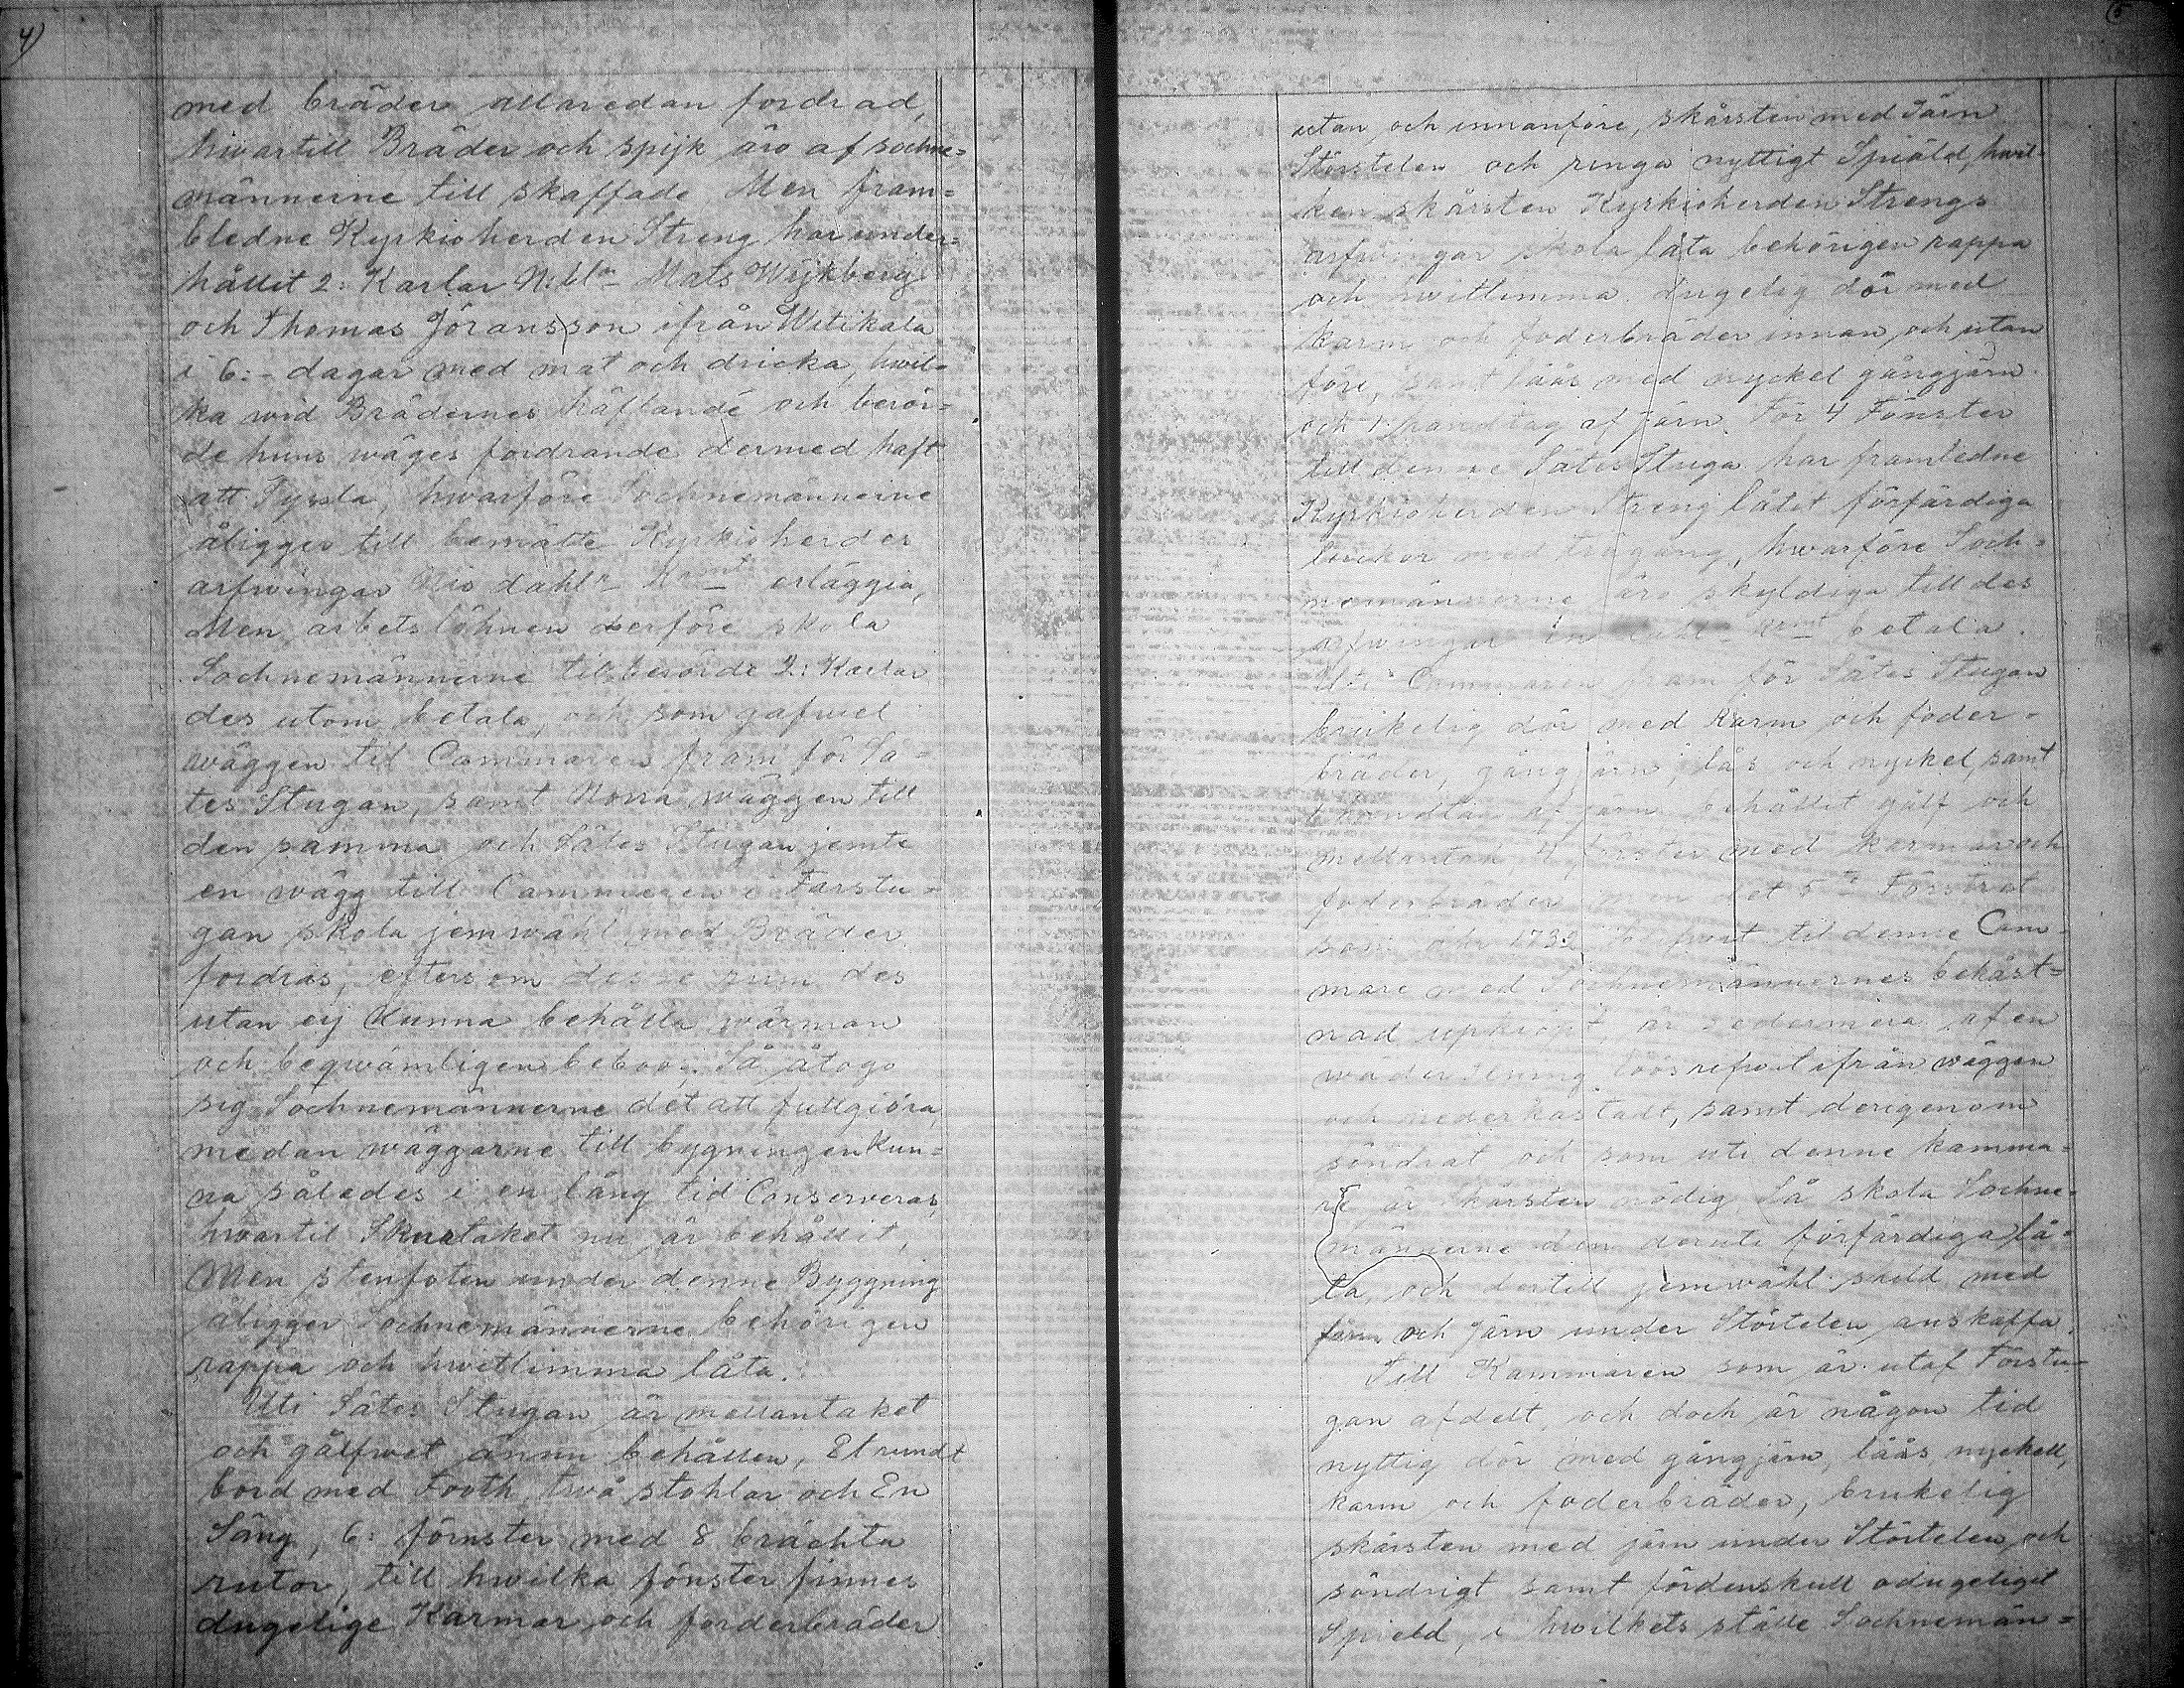 4)
med bräder allaredan fordrad,
hwartill Bräder och spijk äro af sochne=
männerne till skaffade Men fram=
bledne Kyrkioherden Streng har under=
hållit 2: Karlar Nbl. Mats Wijkberg
och Thomas Jöransson ifrån Witikala
i 6:- dagar med mat och dricka, hwil=
ka wid Brädernes häflande och berör=
de huus wäges fordrande dermed haft
att Syssla, hwarföre Sochnemännerne
åligger till bemälte Kyrkioherdes
arfwingar Nio dahlr Krmt erläggia,
Men arbetslöhnen derföre skola
Sochnemännerne till berörde 2: Karlar
des utom betala, och som gafwel
wäggen til Cammaren fram för Sä=
tes Stugan, samt Norra wäggen till
den samma och Sätes Stugan jemte
en wägg till Cammaren i Farstu=
gan skola jemwähl med Bräder
fordras, eftersom desse rum des
utan ej Kunna behålla wärman
och beqwämligen beboo; Så åtogo
sig Sochnemännerne det att fullgiöra,
medan wäggarne till bygningen Kun=
na således i en lång tid Conserveras,
hwartil Skurtaket nu är behållit,
Men stenfoten under denne Byggning
åligger Sochnemännerne behörigen
rappa och hwitlimma låta.
Uti Sätes Stugan är mellantaket
och gålfwet ännu behållen, Et rundt
bord med Footh, twå stohlar och En
Säng, 6: förnster med 8 brächta
rutor, till hwilka fönster finnes
dugelige Karmar och forderbräder
(5
utan och innanföre, skårsten med Järn
Störtelen och ringa nyttigt Spiäld, hwil=
ken skårsten Kyrkioherden Strengs
arfwingar skola låta behörigen rappa
och hwitlimma. Dugelig dör med
karm och foderbräder innan och utan
före, samt låås med nyckel gångjärn
och 1 handtag af järn. För 4 Fönster
till denne Sätes Stuga har framledne
Kyrkioherden Streng låtit förfärdiga
luckor med trägång, hwarföre Soch=
nemännerne äro skyldiga till des
arfwingar en dahl. Krmt betala.
Uti Cammaren fram för Sätes Stugan
brukelig dör med Karm och foder=
bräder, gångjärn, lås och nyckel, samt
1 handtag af järn, behållit gålf och
mellantak 4 fönster med karmar och
foderbräder men det 5te Fönstret
som åhr 1732 blifwit til denne Cam=
mare med Sochnemännernes bekåst=
nad upkiöpt, är sedermera af en
wäderstung löös rifwit ifrån wäggen
och nederkastadt, samt derigenom
söndrat och som uti denne kamma=
re är skårsten nödig, Så skola Sochne=
männerne den deruti förfärdiga lå=
ta, och dertill jemwähl skeld med
färm och Järn under Störtelen anskaffa.
Till Kammaren som är utaf Förstu=
gan afdelt, och doch är någon tid
nyttig dör med gångjärn, låås, nyckell,
karm och foderbräder, brukelig
skårsten med järn under Störtelen och
söndrigt samt fördenskull odugeligit
Spield, i hwilkets ställe Sochnemän=